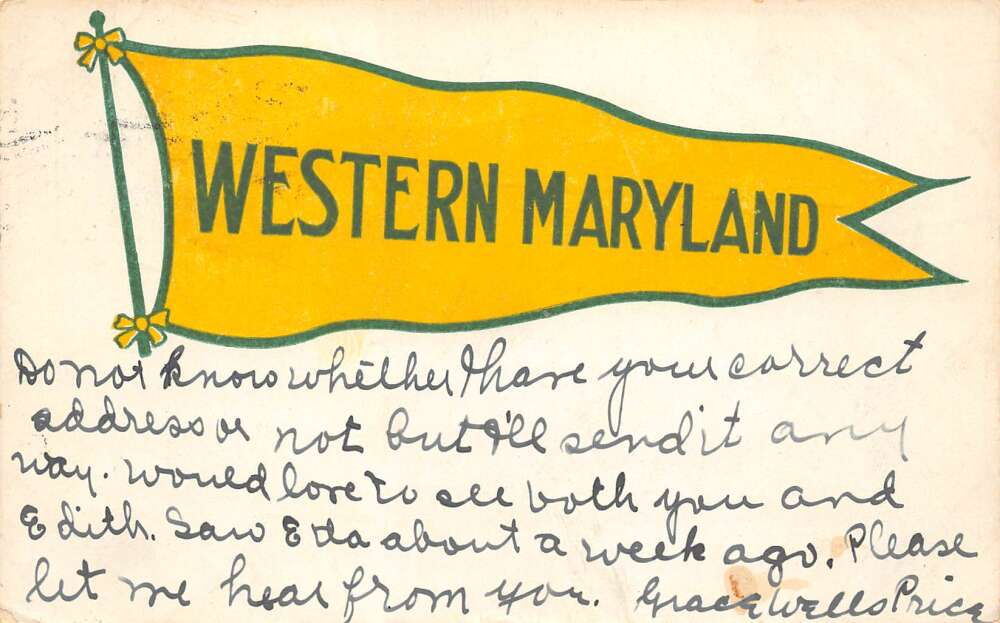 WESTERN MARYLAND
Do not know whether I have your correct
address or not but I'll send it any
way. Would love to see both you and
Edith. Saw Etta about a week ago. Please
let me hear from you. Grace Wells Price